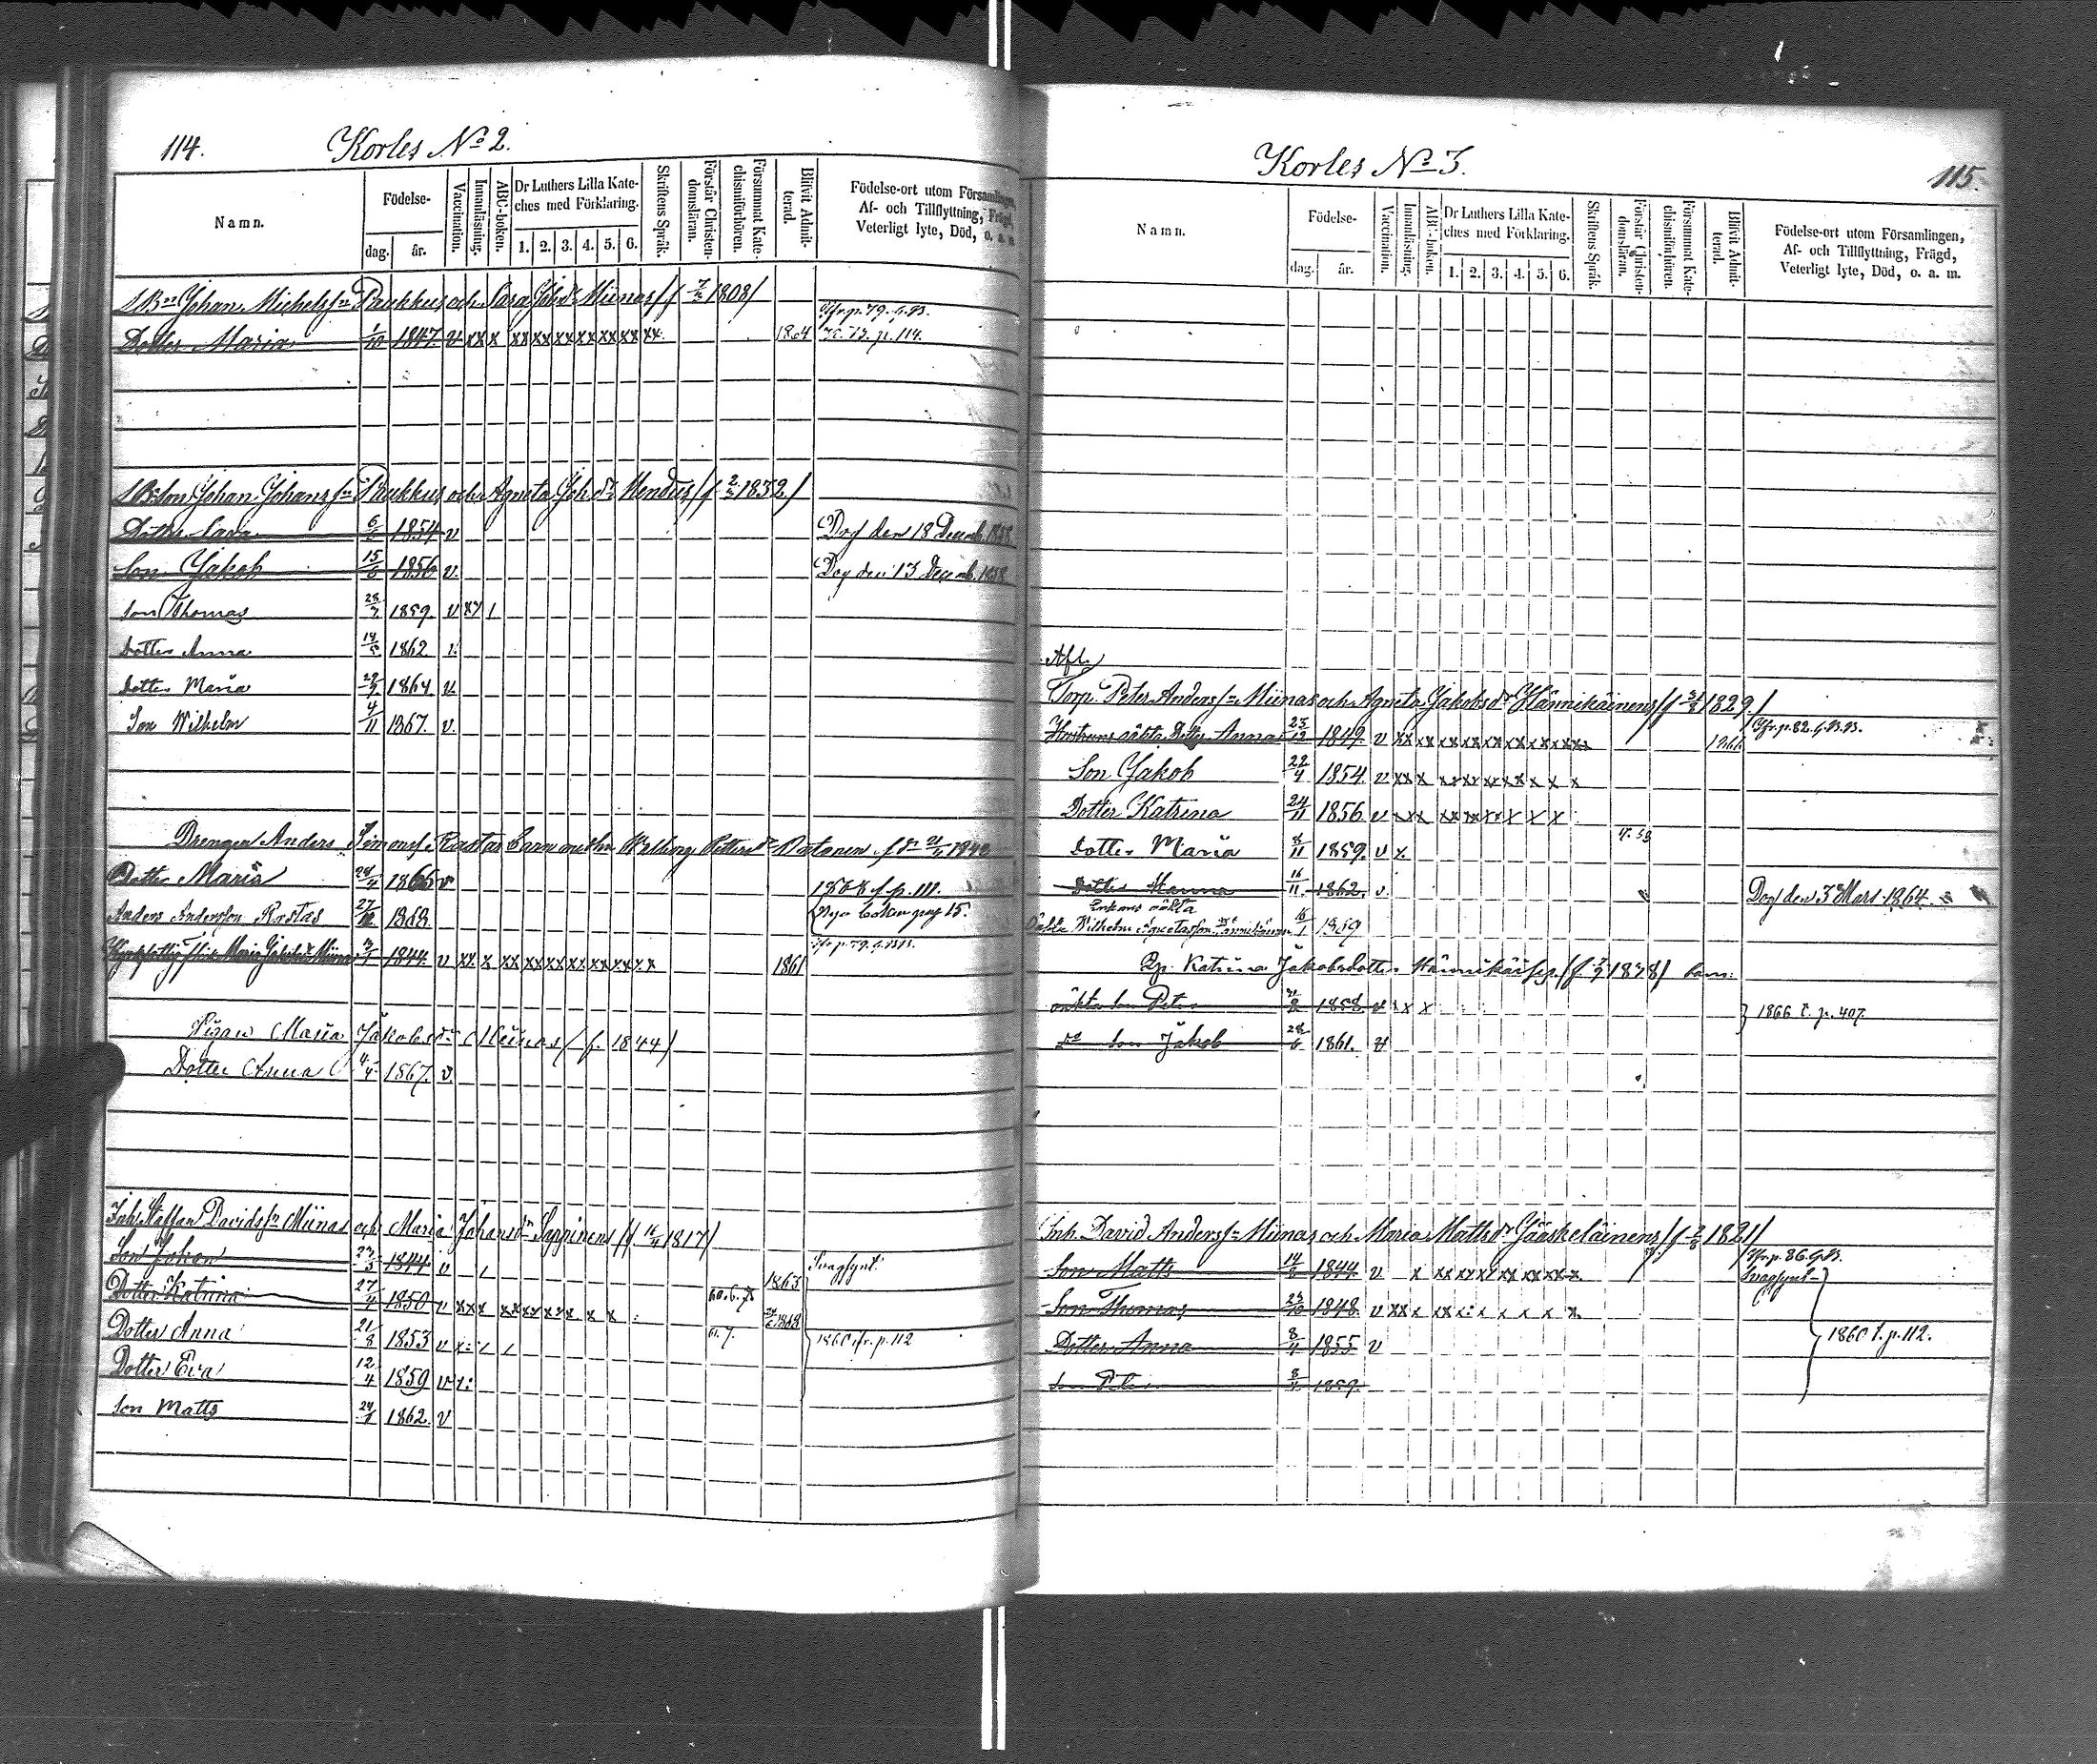 114. Korles No 2.
Namn. Födelse- dag. år. Vaccination. Innanläsning. ABC-boken. Dr Luthers Lilla Kateches med Förklaring. 1. 2. 3. 4. 5. 6. Skriftens Språk. Förstår Christendomsläran. Försummat Katechismiförhören. Blifvit Admitterad. Födelse-ort utom Församlingen, Af- och Tillflyttning, Frägd, Veterligt lyte, Död, o. a. m.
Johan Michelss:n Paukkus och Sara Joh.dr Miinas /f 1808/
Dotter Maria 1/10 1847 v xx x xx xx xx xx xx xx xx 1864 p. 114.
Johan Johanss:n Paukkus och Agneta Joh.dr /f 2/2 1832/
Dotter Sara 6/6 1854 v Dog den 18 Decemb. 1858
Son Jakob 15/6 1856 v. Dog den 13 Decemb. 1858
Son Thomas 28/7 1859. v
Dotter Anna 1862
Dotter Maria 1864 v.
Son Wilhelm 4/11 1867. v.
Drengen Anders Simonss. Rastas
Dotter Maria 1866 v 1868 f. p. 111.
Anders Andersson Rastas 1868 Nya boken pag 15.
Maria Jakobsdr Miinas 1844 v xx x xx xx xx xx xx xx xx 1861
Pigan Maria Jakobsdr Miinas /f. 1844/
Dotter Anna 4/4 1867. v.
Inh. Staffan Davidss:n Miinas och Maria Johansdr Seppinens /f 16/4 1817/
Son Johan 1844 v Svagsynt. 1863
Dotter Katrina 27/4 1850 v xx x xx xx xx x x 1868
Dotter Anna 21/8 1853 v 61. 7. 1860 fr. p. 112
Dotter Eva 12/4 1859 v
Son Matts 24/1 1862. v
Korles No 3. 115.
Namn. Födelse- dag. år. Vaccination. Innanläsning. ABC-boken. Dr Luthers Lilla Kateches med Förklaring. 1. 2. 3. 4. 5. 6. Skriftens Språk. Förstår Christendomsläran. Försummat Katechismiförhören. Blifvit Admitterad. Födelse-ort utom Församlingen, Af- och Tillflyttning, Frägd, Veterligt lyte, Död, o. a. m.
Afl.
Torp. Peter Anderss:n Miinas och Agneta Jakobsdr Hännikäinens /f 1829./
Hustruns oäkta Dotter Anna 23/12 1849. v xx xx xx xx xx xx xx xx 1866 p. 82. G.B.B.
Son Jakob 22/4 1854. v xx x x x
Dotter Katrina 24/11 1856 v xx x xx xx xx x x x
Dotter Maria 8/11 1859. v x.
Dotter Hanna 16/11 1862. v. Dog den 3 Mars 1864
Enkans oäkta
Wilhelm Agnetasson Hännikäinen 1869
Katrina Jakobsdotter Hännikäises /f. 1828/ barn:
oäkta son Peter 1858 v x x
do son Jakob 28/6 1861. v 1866 t. p. 407.
Inh. David Anderss:n Miinas och Maria Mattsdr Jääskeläinens /f 2/8 1821/
Son Matts 1844 v x xx xx xx xx xx x p. 86. G.B. Svagsynt
Son Thomas 23/10 1848. v xx x x x x x
Dotter Anna 8/4 1855 v 1860 t. p. 112.
Son Peter 1859.